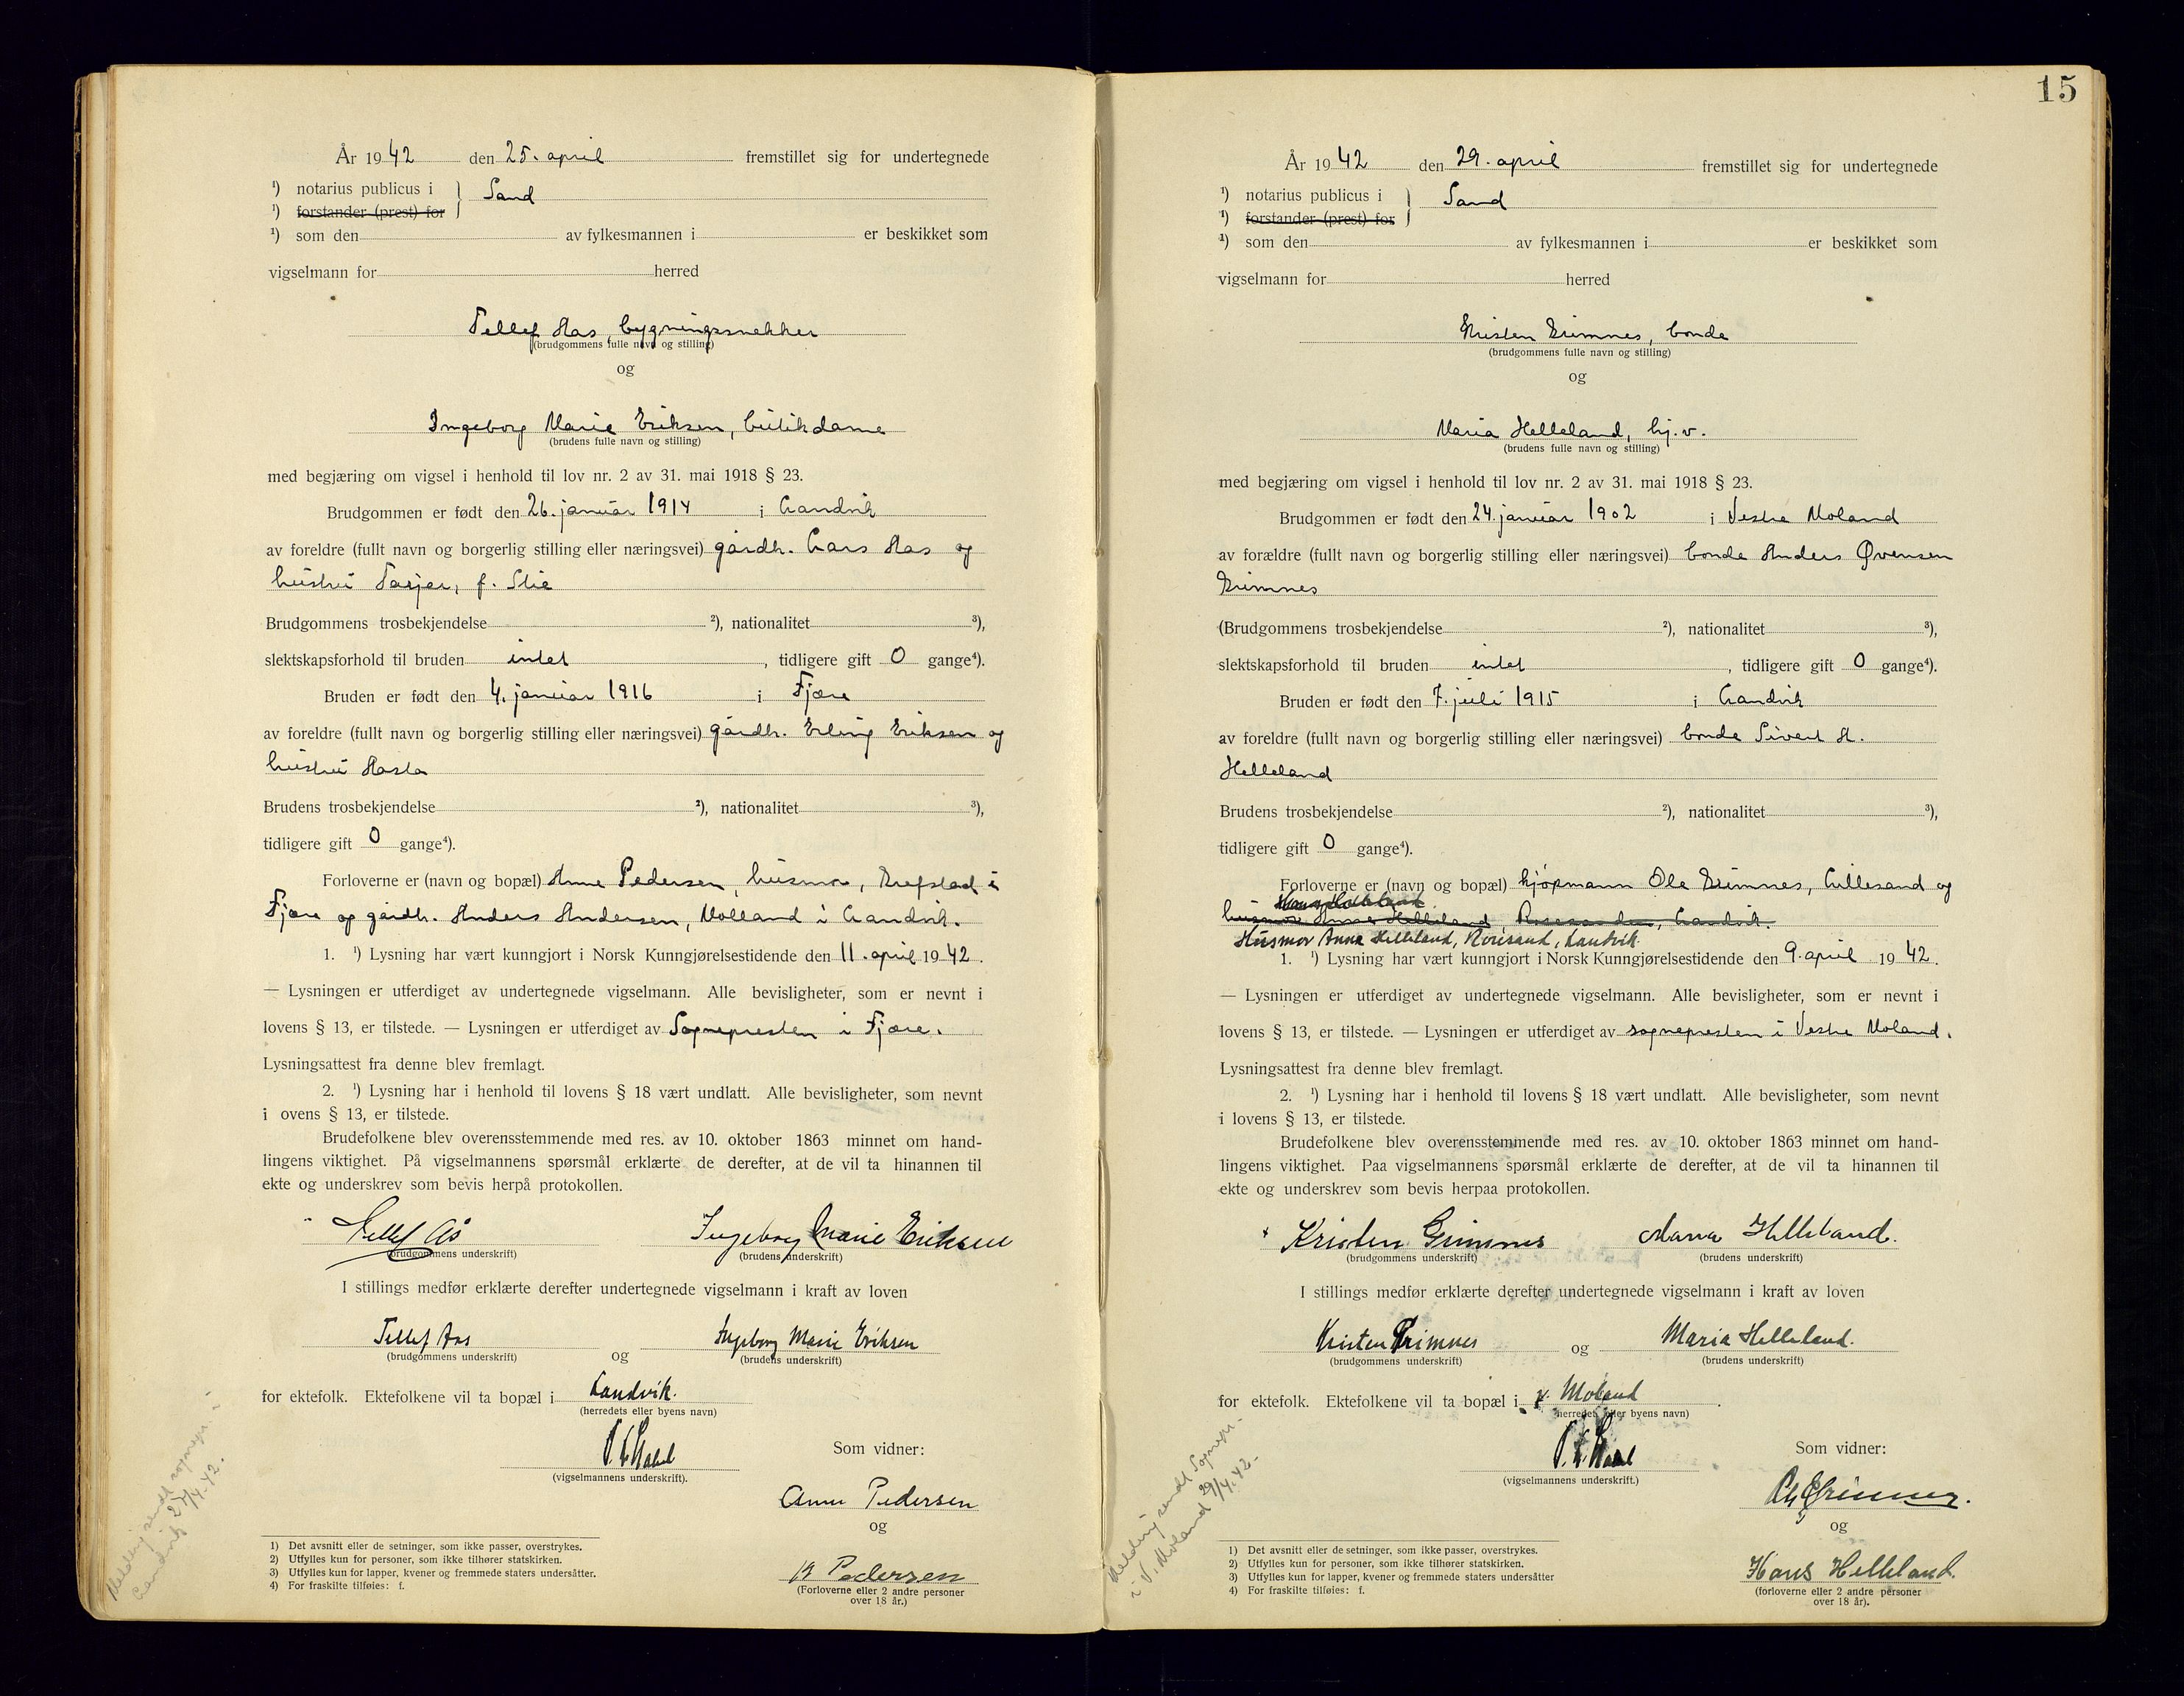 År 1942 den 25. april fremstillet sig for undertegnede
¹) notarius publicus i } Sand
¹) forstander (prest) for
¹) som den av fylkesmannen i er beskikket som
vigselmann for herred
Tellef Aas, bygningssnekker
(brudgommens fulle navn og stilling)
og
Ingeborg Marie Eriksen, butikdame
(brudens fulle navn og stilling)
med begjæring om vigsel i henhold til lov nr. 2 av 31. mai 1918 § 23.
Brudgommen er født den 26. januar 1914 i Landvik
av foreldre (fullt navn og borgerlig stilling eller næringsvei) gårdbr. Lars Aas og
hustru Tarjer, f. Stie
Brudgommens trosbekjendelse ²), nationalitet ³),
slektskapsforhold til bruden intet, tidligere gift 0 gange⁴).
Bruden er født den 4. januar 1916 i Fjære
av foreldre (fullt navn og borgerlig stilling eller næringsvei) gårdbr. Erling Eriksen og
hustru Aasta
Brudens trosbekjendelse ²), nationalitet ³),
tidligere gift 0 gange⁴).
Forloverne er (navn og bopæl) Anne Pedersen, husmor, Grefstad i
Fjære og gårdbr. Anders Andersen, Molland i Landvik.
1. ¹) Lysning har vært kunngjort i Norsk Kunngjørelsestidende den 11. april 1942.
— Lysningen er utferdiget av undertegnede vigselmann. Alle bevisligheter, som er nevnt i
lovens § 13, er tilstede. — Lysningen er utferdiget av Sognepresten i Fjære.
Lysningsattest fra denne blev fremlagt.
2. ¹) Lysning har i henhold til lovens § 18 vært undlatt. Alle bevisligheter, som nevnt
i ovens § 13, er tilstede.
Brudefolkene blev overensstemmende med res. av 10. oktober 1863 minnet om hand-
lingens viktighet. På vigselmannens spørsmål erklærte de derefter, at de vil ta hinannen til
ekte og underskrev som bevis herpå protokollen.
Tellef Ås Ingeborg Marie Eriksen
(brudgommens underskrift) (brudens underskrift)
I stillings medfør erklærte derefter undertegnede vigselmann i kraft av loven
Tellef Aas og Ingeborg Marie Eriksen
(brudgommens underskrift) (brudens underskrift)
for ektefolk. Ektefolkene vil ta bopæl i Landvik.
(herredets eller byens navn)
Som vidner:
(vigselmannens underskrift).
Anne Pedersen
og
A Pedersen
(Forloverne eller 2 andre personer
over 18 år.)
Melding sendt sognepr. i
Landvik 27/4-42.
1) Det avsnitt eller de setninger, som ikke passer, overstrykes.
2) Utfylles kun for personer, som ikke tilhører statskirken.
3) Utfylles kun for lapper, kvener og fremmede staters undersåtter.
4) For fraskilte tilføies: f.
15
År 1942 den 29. april fremstillet sig for undertegnede
¹) notarius publicus i } Sand
¹) forstander (prest) for
¹) som den av fylkesmannen i er beskikket som
vigselmann for herred
Kristen Grimnes, bonde
(brudgommens fulle navn og stilling)
og
Maria Helleland, hj.v.
(brudens fulle navn og stilling)
med begjæring om vigsel i henhold til lov nr. 2 av 31. mai 1918 § 23.
Brudgommen er født den 24. januar 1902 i Vestre Moland
av forældre (fullt navn og borgerlig stilling eller næringsvei) bonde Anders Øvensen
Grimnes
(Brudgommens trosbekjendelse ²), nationalitet ³),
slektskapsforhold til bruden intet, tidligere gift 0 gange⁴).
Bruden er født den 7. juli 1915 i Landvik
av foreldre (fullt navn og borgerlig stilling eller næringsvei) bonde Sivert A.
Helleland
Brudens trosbekjendelse ²), nationalitet ³),
tidligere gift 0 gange⁴).
Forloverne er (navn og bopæl) kjøpmann Ole Grimnes, Lillesand og
Hans Helleland
husmor Anna Helleland, Landvik.
Husmor Anna Helleland, Roresand, Landvik.
1. ¹) Lysning har vært kunngjort i Norsk Kunngjørelsestidende den 9. april 1942.
— Lysningen er utferdiget av undertegnede vigselmann. Alle bevisligheter, som er nevnt i
lovens § 13, er tilstede. — Lysningen er utferdiget av sognepresten i Vestre Moland.
Lysningsattest fra denne blev fremlagt.
2. ¹) Lysning har i henhold til lovens § 18 vært undlatt. Alle bevisligheter, som nevnt
i lovens § 13, er tilstede.
Brudefolkene blev overensstemmende med res. av 10. oktober 1863 minnet om hand-
lingens viktighet. Paa vigselmannens spørsmål erklærte de derefter, at de vil ta hinannen til
ekte og underskrev som bevis herpaa protokollen.
Kristen Grimnes Maria Helleland.
(brudgommens underskrift) (brudens underskrift)
I stillings medfør erklærte derefter undertegnede vigselmann i kraft av loven
Kristen Grimnes og Maria Helleland.
(brudgommens underskrift) (brudens underskrift)
for ektefolk. Ektefolkene vil ta bopæl i V. Moland.
(herredets eller byens navn)
Som vidner:
(vigselmannens underskrift.)
Grimnes.
og
Hans Helleland.
(forloverne eller 2 andre personer
over 18 år).
Melding sendt Sognepr.
i V. Moland 29/4.42.
1) Det avsnitt eller de setninger, som ikke passer, overstrykes.
2) Utfylles kun for personer, som ikke tilhører statskirken.
3) Utfylles kun for lapper, kvener og fremmede staters undersåtter
4) For fraskilte tilføies: f.